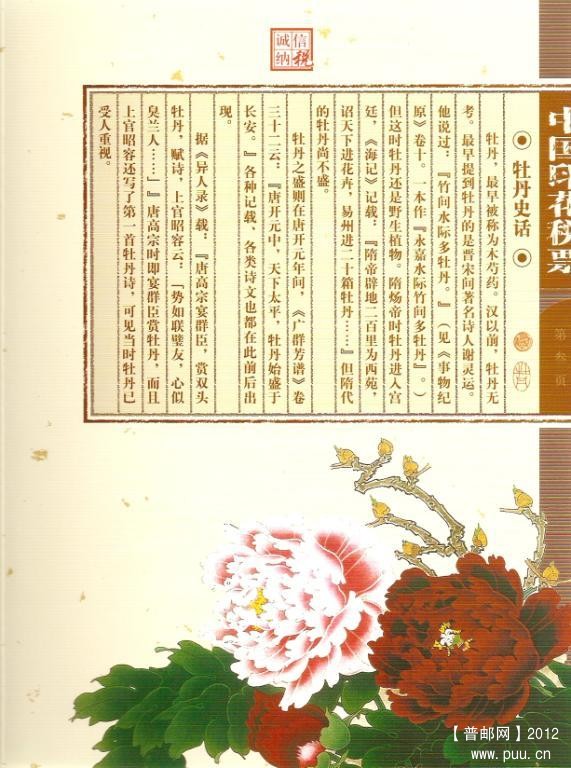 诚信
纳税
中国印花税票
第叁页
牡丹史话
牡丹，最早被称为木芍药。汉以前，牡丹无
考。最早提到牡丹的是晋宋间著名诗人谢灵运。
他说过：『竹间水际多牡丹。』（见《事物纪
原》卷十。一本作『永嘉水际竹间多牡丹』。）
但这时牡丹还是野生植物。隋炀帝时牡丹进入宫
廷，《海记》记载：『隋帝辟地二百里为西苑，
诏天下进花卉，易州进二十箱牡丹……』但隋代
的牡丹尚不盛。
牡丹之盛则在唐开元年间，《广群芳谱》卷
三十二云：『唐开元中，天下太平，牡丹始盛于
长安。』各种记载、各类诗文也都在此前后出
现。
据《异人录》载：『唐高宗宴群臣，赏双头
牡丹，赋诗，上官昭容云：「势如联璧友，心似
臭兰人……」』唐高宗时即宴群臣赏牡丹，而且
上官昭容还写了第一首牡丹诗，可见当时牡丹已
受人重视。
【普邮网】2012
www.puu.cn